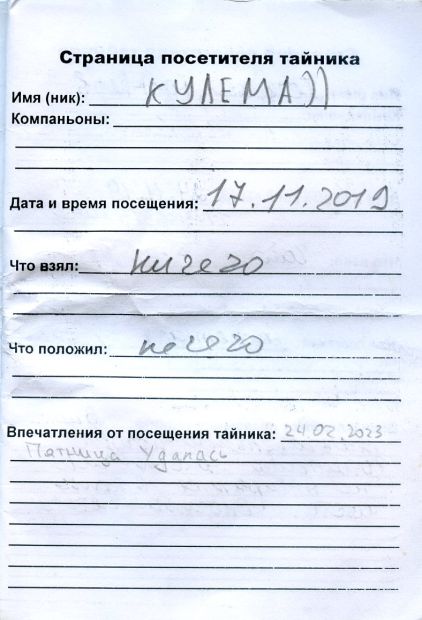 Страница посетителя тайника
Имя (ник): КУЛЕМА))
Компаньоны:
Дата и время посещения: 17.11.2019
Что взял: ничего
Что положил: ничего
Впечатления от посещения тайника: 24 02.2023
Пятница Удалась